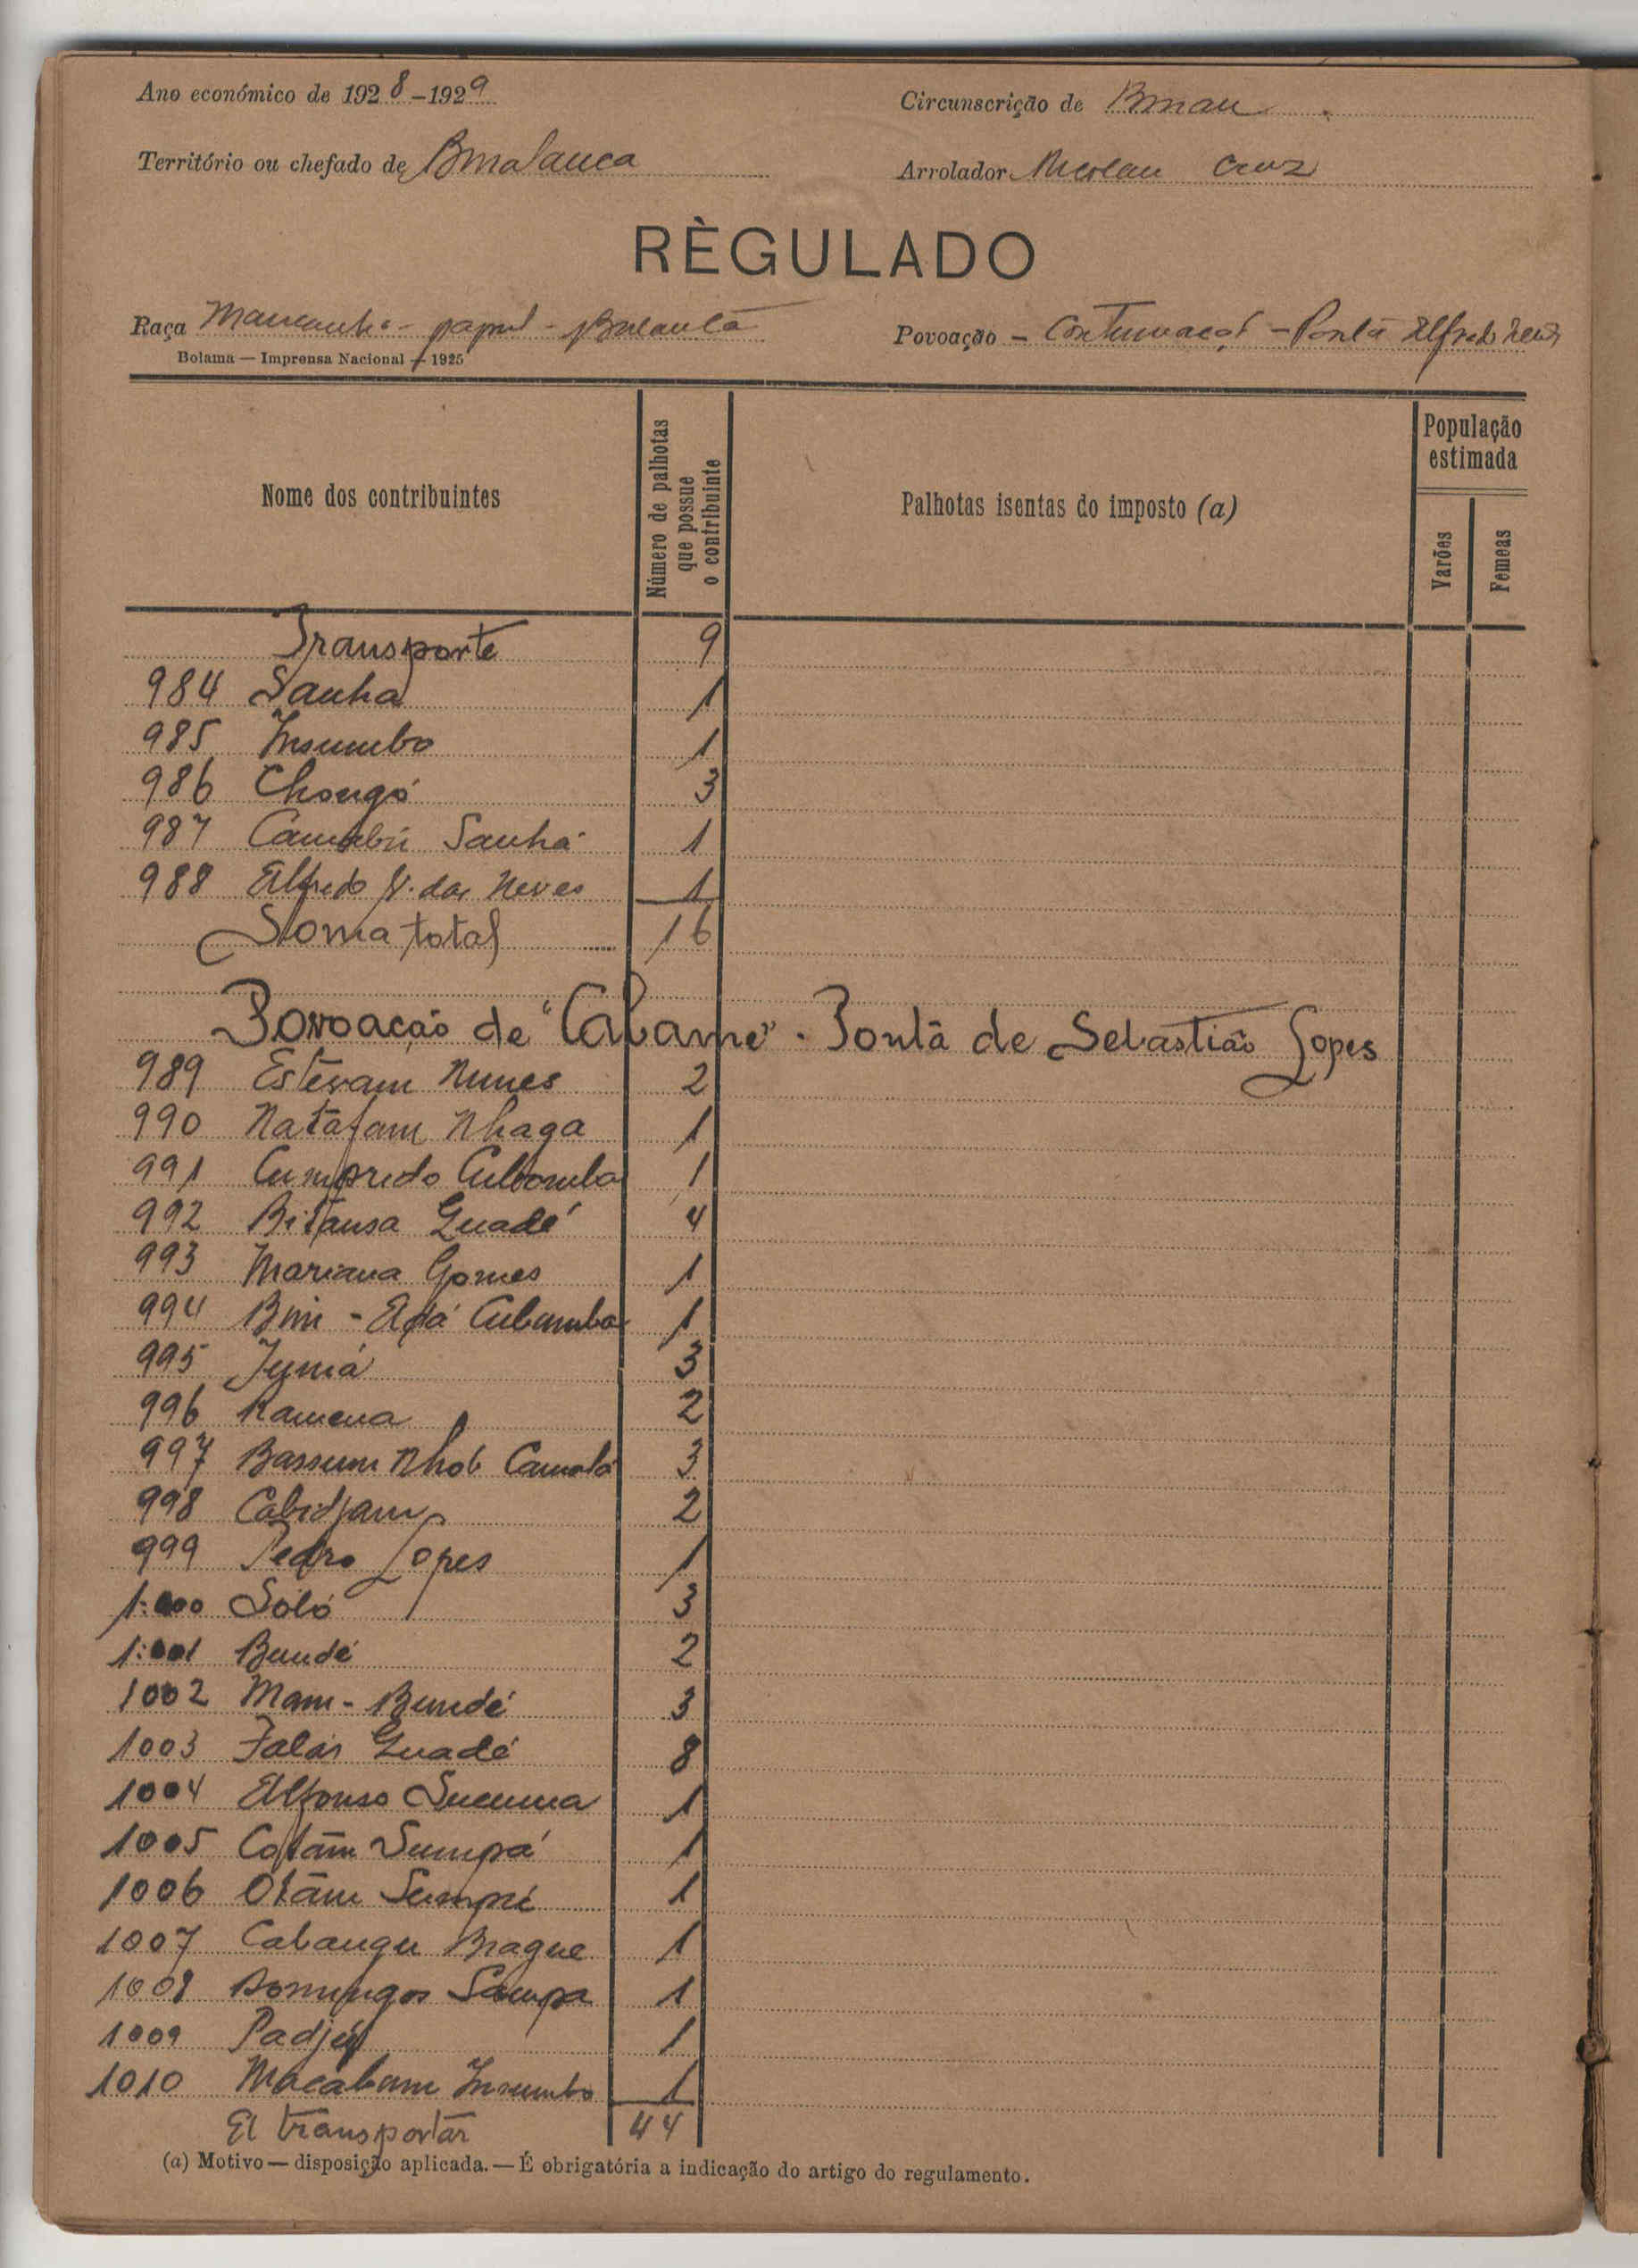 Ano económico de 1928-1929
Circunscrição de Bissau
Território ou chefado de
Arrolador Nicolau Cruz
RÈGULADO
Raça Mancanha - papel - Balanta
Povoação - Continuação - Ponta Alfredo Neves
Bolama — Imprensa Nacional — 1925
Nome dos contribuintes
Número de palhotas que possue o contribuinte
Palhotas isentas do imposto (a)
População estimada
Varões
Femeas
Transporte 9
984 Sanha 1
985 Insumbo 1
986 Chongó 3
987 Sanhá 1
988 Alfredo J. das Neves 1
Soma total 16
Povoação de "Cabame" - Ponta de Sebastião Lopes
989 Estevam Nunes 2
990 Natafam Nhaga 1
991 Cumprido Cubomba 1
992 Bitansa Guadé 4
993 Mariana Gomes 1
994 Cubumba 1
995 3
996 Ramena 2
997 Bassum Nhob 3
998 Cabidjam 2
999 Pedro Lopes 1
1:000 Soló 3
1:001 Bundé 2
1002 Mam-Bundé 3
1003 Falás Guadé 8
1004 Alfonso 1
1005 Sumpá 1
1006 Otâm 1
1007 Cabangu 1
1008 Domingos Sampa 1
1009 1
1010 Macabam Insumbo 1
A transportar 44
(a) Motivo — disposição aplicada. — É obrigatória a indicação do artigo do regulamento.